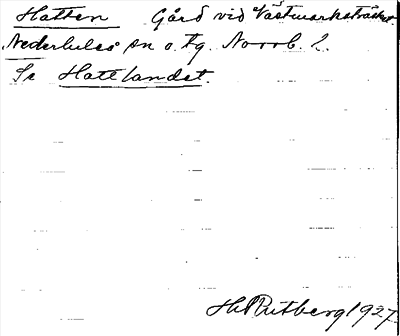 Hatten Gård vid Västmarksträsket.
Nederluleå sn o. tg. Norrb. l.
Se Hattlandet.
H Rutberg 1927